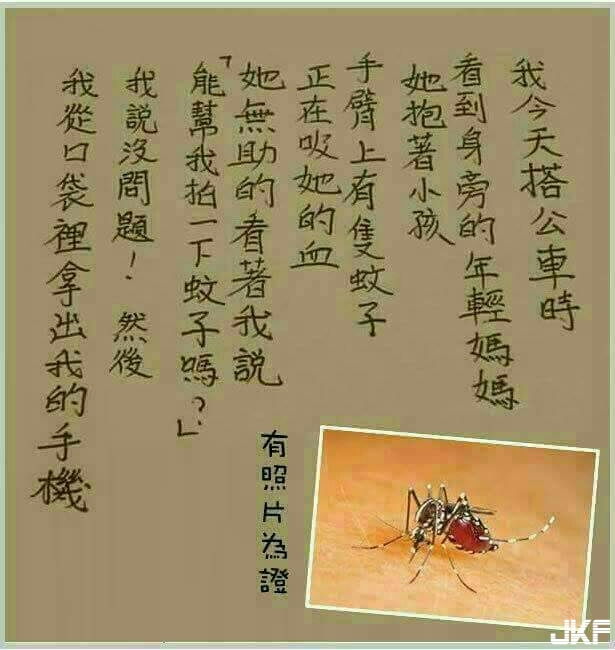 我今天搭公車時
看到身旁的年輕媽媽
她抱著小孩
手臂上有隻蚊子
正在吸她的血
她無助的看著我說
「能幫我拍一下蚊子嗎？」
我說沒問題！然後
我從口袋裡拿出我的手機
有照片為證
JKF